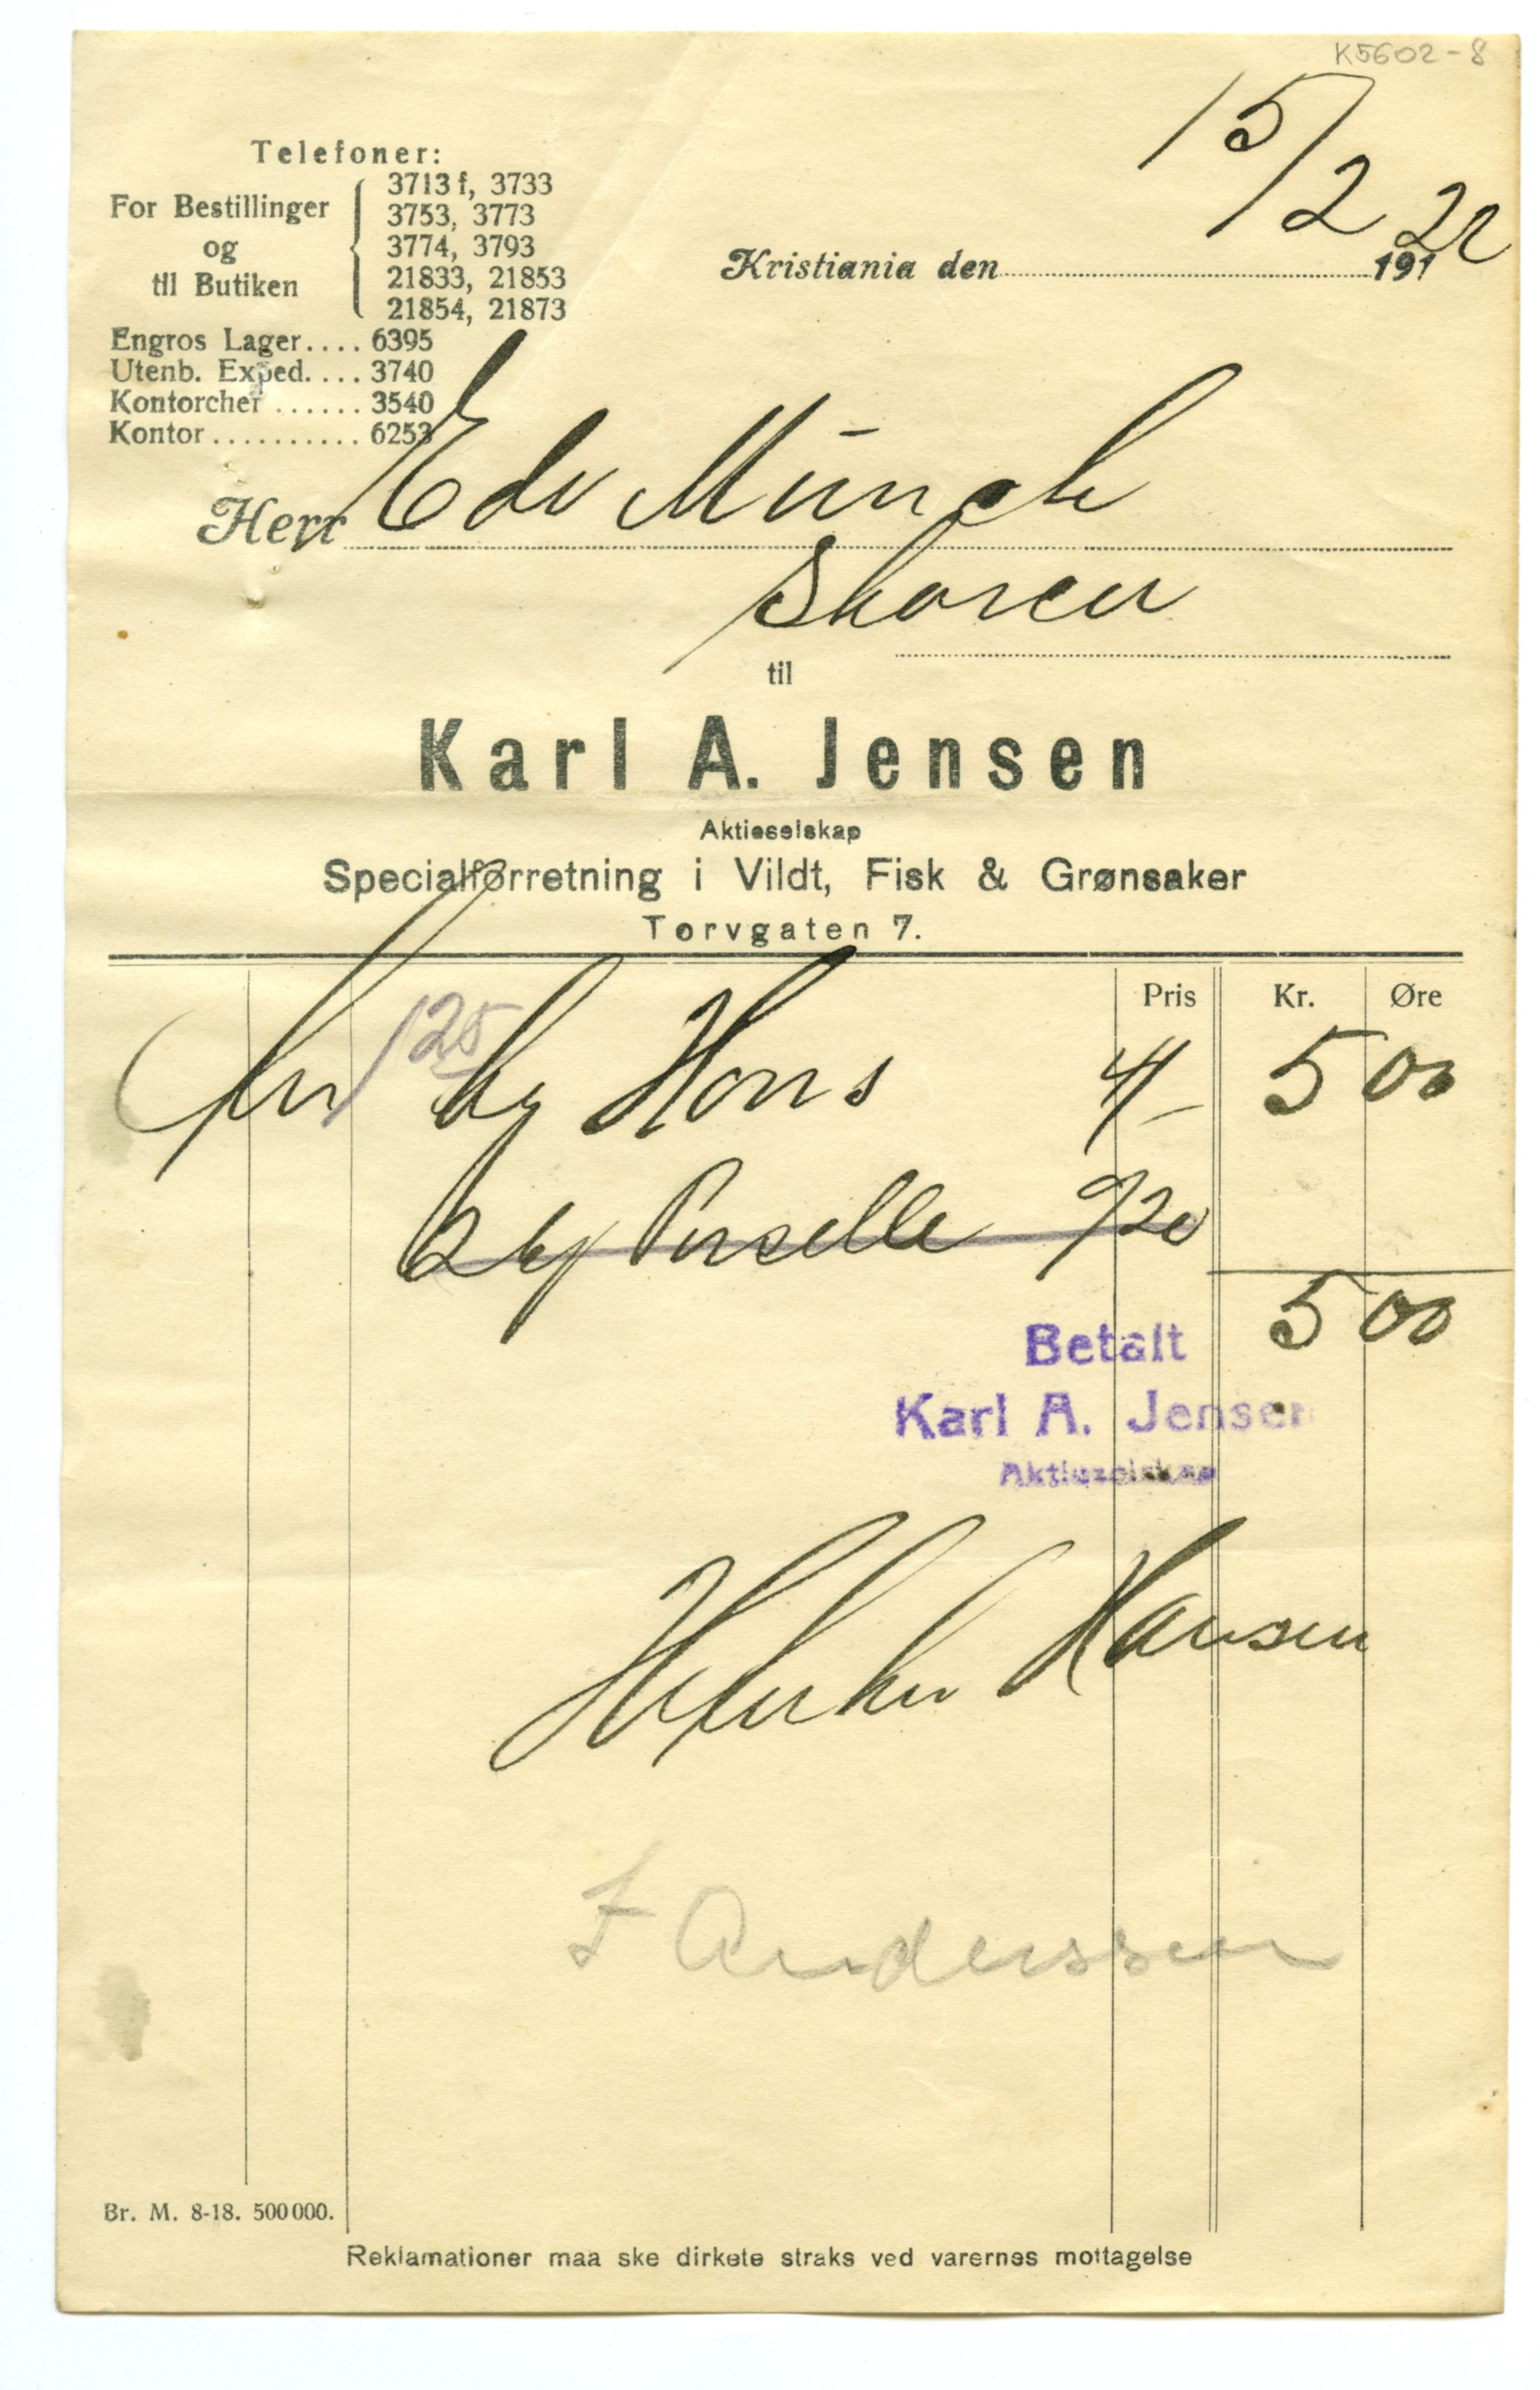 K5602-8
15/2 22
Telefoner:
For Bestillinger og til Butiken
3713 f, 3733
3753, 3773
3774, 3793
21833, 21853
21854, 21873
Kristiania den 191
Engros Lager.... 6395
Utenb. Exped.... 3740
Kontorchef ...... 3540
Kontor .......... 6253
Herr Edv Münch
Skøien
til
Karl A. Jensen
Aktieselskap
Specialforretning i Vildt, Fisk & Grønsaker
Torvgaten 7.
Pris Kr. Øre
125 kg Høns 4/- 5 00
2 kg 9/20
5 00
Betalt
Karl A. Jensen
Aktieselskap
Hansen
Anderssen
Br. M. 8-18. 500000.
Reklamationer maa ske dirkete straks ved varernes mottagelse